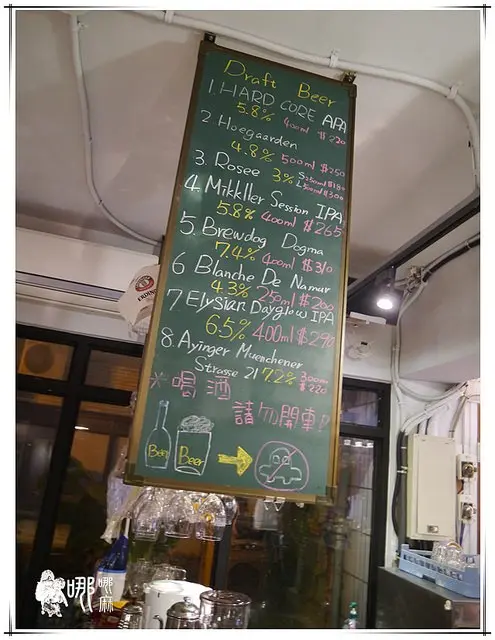 Draft Beer
1. HARD CORE APA
5.8% 400ml $220
2 Hoegaarden
4.8% 500ml $250
3. Rosee 3% S:250ml $180
L:500ml $300
4. Mikkller Session IPA
5.8% 400ml $265
5. Brewdog Dogma
7.4% 400ml $310
6 Blanche De Namur
4.3% 250ml $200
7 Elysian Dayglow IPA
6.5% 400ml $290
8. Ayinger Muenchener
Strasse 21 7.2% 300ml
$220
*喝酒
請勿開車!
Beer Beer
ERDINGER
哪哪麻